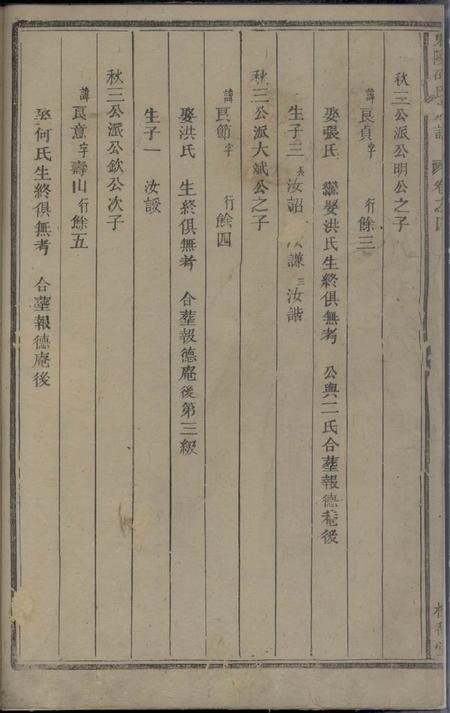 秋三公派公明公之子
諱良貞字 行餘三
娶張氏 繼娶洪氏生終俱無考 公與二氏合墓報德菴後
生子三 長汝詔 次汝謙 三汝諧
秋三公派大斌公之子
諱良節字 行餘四
娶洪氏 生終俱無考 合墓報德庵後第三級
生子一 汝諼
秋三公派公欽公次子
諱良意字壽山行餘五
娶何氏生終俱無考 合墓報德庵後